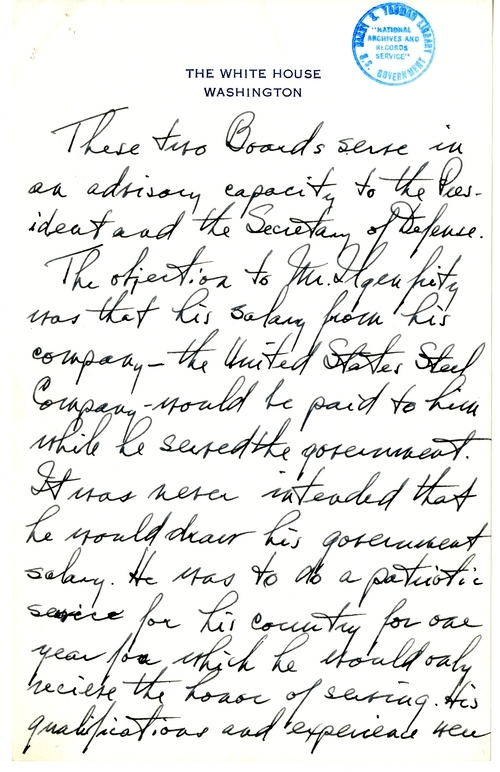 HARRY S. TRUMAN LIBRARY
"NATIONAL
ARCHIVES AND
RECORDS
SERVICE"
U.S. GOVERNMENT
THE WHITE HOUSE
WASHINGTON
These two Boards serve in
an advisory capacity to the Pres-
ident and the Secretary of Defense.
The objection to Mr. Ilgenfrity
was that his salary from his
company – the United States Steel
Company – would be paid to him
while he served the government.
It was never intended that
he would draw his government
salary. He was to do a patriotic
service for his country for one
year for which he would only
recieve the honor of serving. His
qualifications and experience were